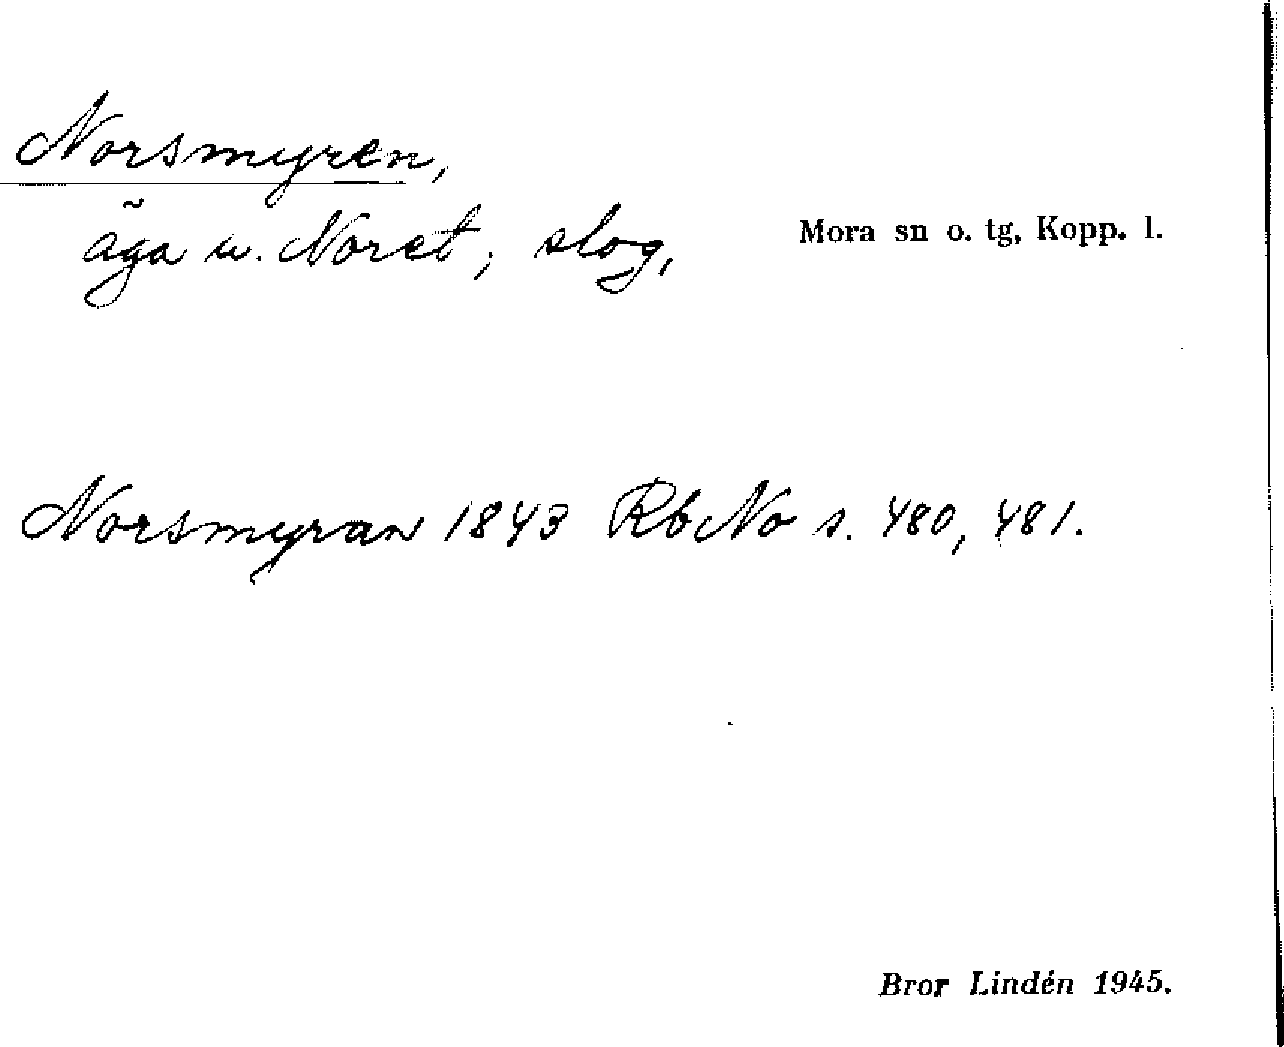 Norsmyren,
äga u. Noret; slog,
Mora sn o. tg, Kopp. l.
Norsmyran 1843 RbNo s. 480, 481.
Bror Lindén 1945.